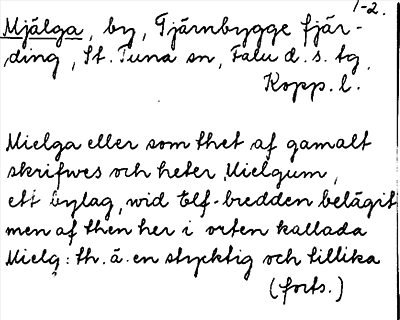 1-2.
Mjälga, by, Tjärnbygge fjär-
ding, St. Tuna sn, Falu d. s. tg,
Kopp. l.
Mielga eller som thet af gamalt
skrifwes och heter Mielgum,
ett bylag, wid Elf-bredden belägit
men af then her i orten kallada
Mielg: th. ä. en stycktig och tillika
(forts.)